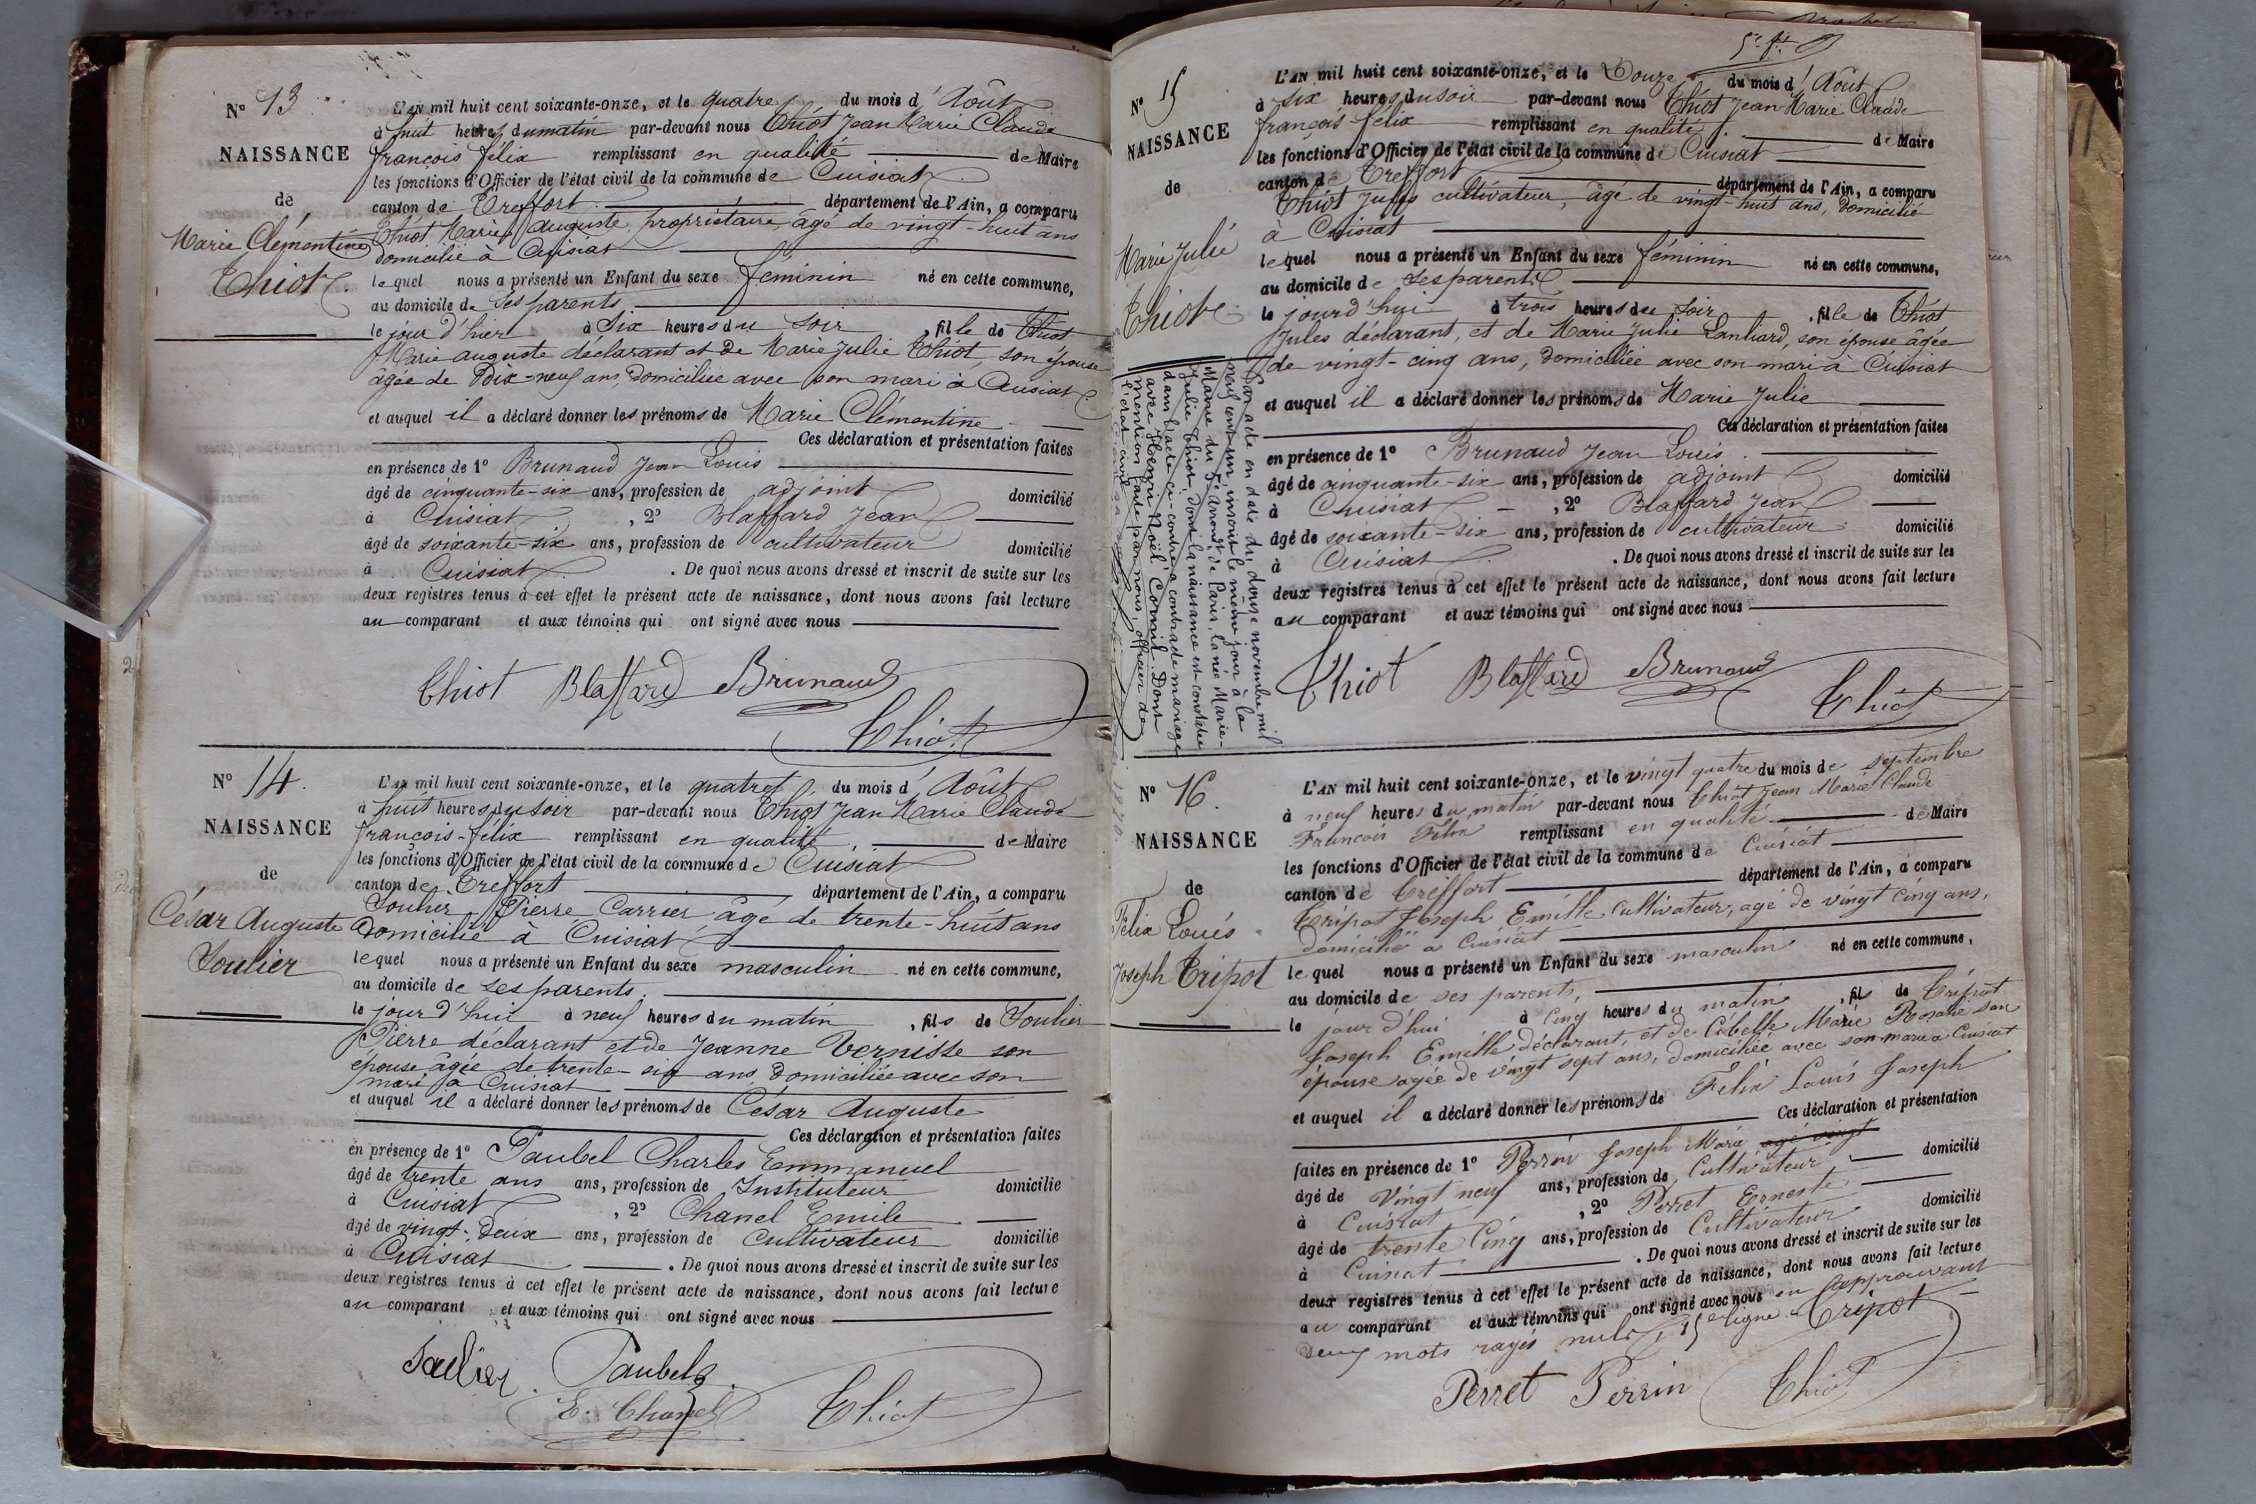 N° 13
NAISSANCE
de
Marie Clémentine
Thiot
L'AN mil huit cent soixante-onze, et le quatre du mois d'Août
à huit heures du matin par-devant nous Thiot Jean Marie Claude
françois félix remplissant en qualité de Maire
les fonctions d'Officier de l'état civil de la commune de Cuisiat
canton de Treffort département de l'Ain, a comparu
Thiot Marie Auguste, propriétaire, âgé de vingt-huit ans
domicilié à Cuisiat
lequel nous a présenté un Enfant du sexe féminin né en cette commune,
au domicile de ses parents
le jour d'hier à Six heures du soir, fille de Thiot
Marie auguste déclarant et de Marie Julie Thiot, son épouse
âgée de Dix-neuf ans, Domiciliée avec son mari à Cuisiat
et auquel il a déclaré donner les prénoms de Marie Clémentine
Ces déclaration et présentation faites
en présence de 1° Brunaud Jean Louis
âgé de cinquante-six ans, profession de adjoint domicilié
à Cuisiat, 2° Blaffard Jean
âgé de soixante-six ans, profession de cultivateur domicilié
à Cuisiat. De quoi nous avons dressé et inscrit de suite sur les
deux registres tenus à cet effet le présent acte de naissance, dont nous avons fait lecture
au comparant et aux témoins qui ont signé avec nous
Thiot Blaffard Brunaud
Thiot
N° 14.
NAISSANCE
de
César Auguste
Soulier
L'AN mil huit cent soixante-onze, et le quatre du mois d'Août
à huit heures du soir par-devant nous Thiot Jean Marie Claude
françois-félix remplissant en qualité de Maire
les fonctions d'Officier de l'état civil de la commune de Cuisiat
canton de Treffort département de l'Ain, a comparu
Soulier Pierre Carrier, âgé de trente-huit ans
Domicilié à Cuisiat
lequel nous a présenté un Enfant du sexe masculin né en cette commune,
au domicile de ses parents.
le jour d'hui à neuf heures du matin, fils de Soulier
Pierre déclarant et de Jeanne Vernisse son
épouse âgée de trente-six ans Domiciliée avec son
mari à Cuisiat
et auquel il a déclaré donner les prénoms de César Auguste
Ces déclaration et présentation faites
en présence de 1° Paubel Charles Emmanuel
âgé de trente ans ans, profession de Instituteur domicilié
à Cuisiat, 2° Chanel Emile
âgé de vingt-deux ans, profession de Cultivateur domicilié
à Cuisiat. De quoi nous avons dressé et inscrit de suite sur les
deux registres tenus à cet effet le présent acte de naissance, dont nous avons fait lecture
au comparant et aux témoins qui ont signé avec nous
Soulier. Paubel
E. Chanel Thiot
N° 15
NAISSANCE
de
Marie Julie
Thiot
L'AN mil huit cent soixante-onze, et le Douze du mois d'Août
à six heures du soir par-devant nous Thiot Jean Marie Claude
françois félix remplissant en qualité de Maire
les fonctions d'Officier de l'état civil de la commune de Cuisiat
canton de Treffort département de l'Ain, a comparu
Thiot Jules cultivateur, âgé de vingt-huit ans, domicilié
à Cuisiat
lequel nous a présenté un Enfant du sexe féminin né en cette commune,
au domicile de ses parents
le jourd'hui à trois heures du soir, fille de Thiot
Jules déclarant, et de Marie Julie Lanhard, son épouse âgée
de vingt-cinq ans, domiciliée avec son mari à Cuisiat
et auquel il a déclaré donner les prénoms de Marie Julie
Ces déclaration et présentation faites
en présence de 1° Brunaud Jean Louis
âgé de cinquante-six ans, profession de adjoint domicilié
à Cuisiat, 2° Blaffard Jean
âgé de soixante-six ans, profession de cultivateur domicilié
à Cuisiat. De quoi nous avons dressé et inscrit de suite sur les
deux registres tenus à cet effet le présent acte de naissance, dont nous avons fait lecture
au comparant et aux témoins qui ont signé avec nous
Thiot Blaffard Brunaud
Thiot
Par acte en date du douze novembre mil
neuf cent un, inscrit le même jour à la
Mairie du Arrondt. de Paris, la née Marie-
Julie Thiot, dont la naissance est constatée
dans l'acte ci-contre a contracté mariage
avec Henri Noël Dont
mention faite par nous, officier de
l'état civil
N° 16.
NAISSANCE
de
Félix Louis
Joseph Tripot
L'AN mil huit cent soixante-onze, et le vingt quatre du mois de septembre
à neuf heures du matin par-devant nous Thiot Jean Marie Claude
François Félix remplissant en qualité de Maire
les fonctions d'Officier de l'état civil de la commune de Cuisiat
canton de Treffort département de l'Ain, a comparu
Tripot Joseph Emille Cultivateur, agé de vingt cinq ans,
domicilié à Cuisiat
lequel nous a présenté un Enfant du sexe masculin né en cette commune,
au domicile de ses parents,
le jour d'hui à cinq heures du matin, fil de Tripot
Joseph Emille déclarant, et de Cibelle Marie Rosalie son
épouse agée de vingt sept ans, domiciliée avec son mari a Cuisiat
et auquel il a déclaré donner les prénoms de Félix Louis Joseph
Ces déclaration et présentation
faites en présence de 1° Perrin Joseph Marie agé vingt
âgé de Vingt neuf ans, profession de Cultivateur domicilié
à Cuisiat, 2° Perret Erneste
âgé de trente Cinq ans, profession de Cultivateur domicilié
à Cuisiat. De quoi nous avons dressé et inscrit de suite sur les
deux registres tenus à cet effet le présent acte de naissance, dont nous avons fait lecture
au comparant et aux témoins qui ont signé avec nous en approuvant
deux mots rayés nuls, 15e ligne. Tripot
Perret Perrin Thiot